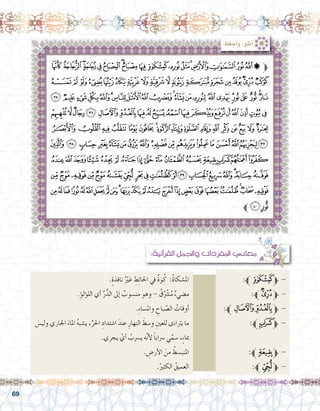 أتلو وأحفظ
۞ اللَّهُ نُورُ السَّمَٰوَٰتِ وَالْأَرْضِ مَثَلُ نُورِهِ كَمِشْكَوٰةٍ فِيهَا مِصْبَاحٌ الْمِصْبَاحُ فِي زُجَاجَةٍ الزُّجَاجَةُ كَأَنَّهَا
كَوْكَبٌ دُرِّيٌّ يُوقَدُ مِن شَجَرَةٍ مُّبَٰرَكَةٍ زَيْتُونَةٍ لَّا شَرْقِيَّةٍ وَلَا غَرْبِيَّةٍ يَكَادُ زَيْتُهَا يُضِيءُ وَلَوْ لَمْ تَمْسَسْهُ
نَارٌ نُّورٌ عَلَىٰ نُورٍ يَهْدِي اللَّهُ لِنُورِهِ مَن يَشَاءُ وَيَضْرِبُ اللَّهُ الْأَمْثَٰلَ لِلنَّاسِ وَاللَّهُ بِكُلِّ شَيْءٍ عَلِيمٌ ٣٥
فِي بُيُوتٍ أَذِنَ اللَّهُ أَن تُرْفَعَ وَيُذْكَرَ فِيهَا اسْمُهُ يُسَبِّحُ لَهُ فِيهَا بِالْغُدُوِّ وَالْآصَالِ ٣٦ رِجَالٌ لَّا تُلْهِيهِمْ
تِجَٰرَةٌ وَلَا بَيْعٌ عَن ذِكْرِ اللَّهِ وَإِقَامِ الصَّلَوٰةِ وَإِيتَاءِ الزَّكَوٰةِ يَخَافُونَ يَوْمًا تَتَقَلَّبُ فِيهِ الْقُلُوبُ وَالْأَبْصَٰرُ
٣٧ لِيَجْزِيَهُمُ اللَّهُ أَحْسَنَ مَا عَمِلُوا وَيَزِيدَهُم مِّن فَضْلِهِ وَاللَّهُ يَرْزُقُ مَن يَشَاءُ بِغَيْرِ حِسَابٍ ٣٨ وَالَّذِينَ
كَفَرُوا أَعْمَٰلُهُمْ كَسَرَابٍ بِقِيعَةٍ يَحْسَبُهُ الظَّمْـَٔانُ مَاءً حَتَّىٰ إِذَا جَاءَهُ لَمْ يَجِدْهُ شَيْـًٔا وَوَجَدَ اللَّهَ عِندَهُ
فَوَفَّىٰهُ حِسَابَهُ وَاللَّهُ سَرِيعُ الْحِسَابِ ٣٩ أَوْ كَظُلُمَٰتٍ فِي بَحْرٍ لُّجِّيٍّ يَغْشَىٰهُ مَوْجٌ مِّن فَوْقِهِ مَوْجٌ مِّن
فَوْقِهِ سَحَابٌ ظُلُمَٰتٌ بَعْضُهَا فَوْقَ بَعْضٍ إِذَا أَخْرَجَ يَدَهُ لَمْ يَكَدْ يَرَىٰهَا وَمَن لَّمْ يَجْعَلِ اللَّهُ لَهُ نُورًا فَمَا لَهُ مِن
نُّورٍ ٤٠
معاني المفردات والجمل القرآنية:
– ﴿كَمِشْكَوٰةٍ﴾: المشكاةُ: كُوةٌ في الحائطِ غيرُ نافذةٍ.
– ﴿دُرِّيٌّ﴾: مضيءٌ مُشْرِقٌ – وهو منسوبٌ إلى الدُّرِّ أي اللؤلؤ.
– ﴿بِالْغُدُوِّ وَالْآصَالِ﴾: أوقاتُ الصباحِ والمساءِ.
– ﴿كَسَرَابٍ﴾: ما يتراءى للعينِ وسطَ النهارِ عندَ اشتدادِ الحرِّ، يشبهُ الماءَ الجاري وليسَ بماءٍ، سمّي سراباً لأنّه يسربُ أي يجري.
– ﴿بِقِيعَةٍ﴾: المنبسطُ من الأرضِ.
– ﴿لُّجِّيٍّ﴾: العميقُ الكثيرُ.
69